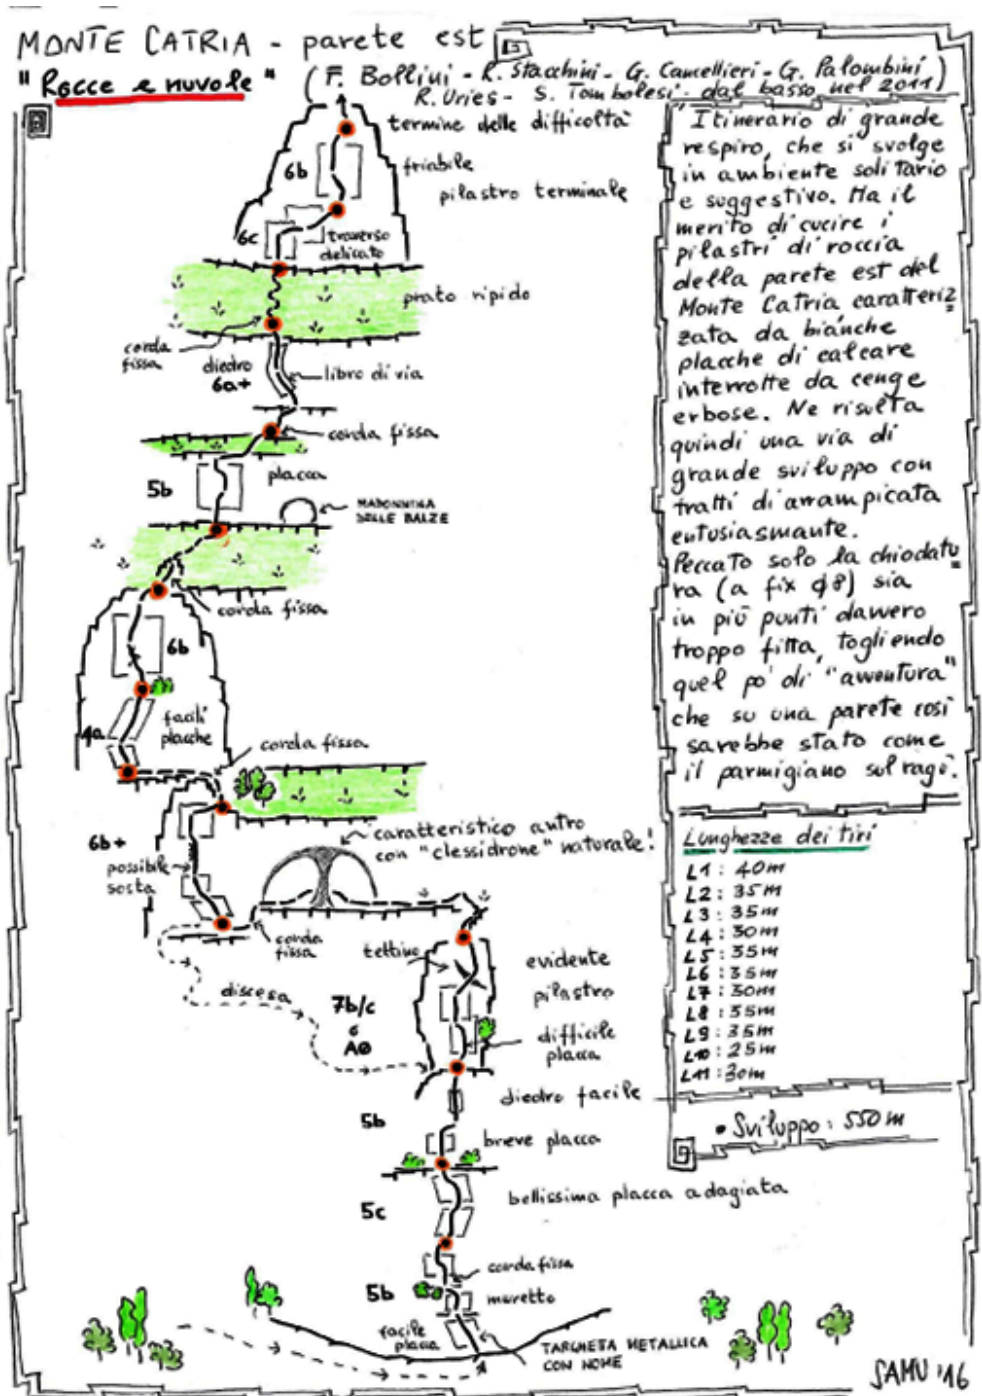 MONTE CATRIA - parete est
"Rocce e nuvole"
(F. Bollini - R. Stacchini - G. Cancellieri - G. Palombini
R. Uries - S. Tombolesi - dal basso nel 2011)
termine delle difficoltà
6b
friabile
pilastro terminale
6c
traverso
delicato
prato ripido
corda
fissa
diedro
6a+
libro di via
corda fissa
placca
5b
MADONNINA
DELLE BALZE
corda fissa
6b
4a
facili
placche
corda fissa
6b+
possibile
sosta
caratteristico antro
con "clessidrone" naturale!
corda
fissa
tettino
evidente
pilastro
discesa
7b/c
o
A0
difficile
placca
diedro facile
5b
breve placca
bellissima placca adagiata
5c
corda fissa
5b
muretto
facile
placca
TARGHETA METALLICA
CON NOME
"Itinerario di grande
respiro, che si svolge
in ambiente solitario
e suggestivo. Ha il
merito di cucire i
pilastri di roccia
della parete est del
Monte Catria caratteriz
zata da bianche
placche di calcare
interrotte da cenge
erbose. Ne risulta
quindi una via di
grande sviluppo con
tratti di arrampicata
entusiasmante.
Peccato solo la chiodatu
ra (a fix ϕ8) sia
in più punti davvero
troppo fitta, togliendo
quel po' di "avventura"
che su una parete così
sarebbe stato come
il parmigiano sul ragù.
Lunghezze dei tiri
L1: 40m
L2: 35m
L3: 35m
L4: 30m
L5: 35m
L6: 35m
L7: 30m
L8: 35m
L9: 35m
L10: 25m
L11: 30m
• Sviluppo: 550m
SAMU '16